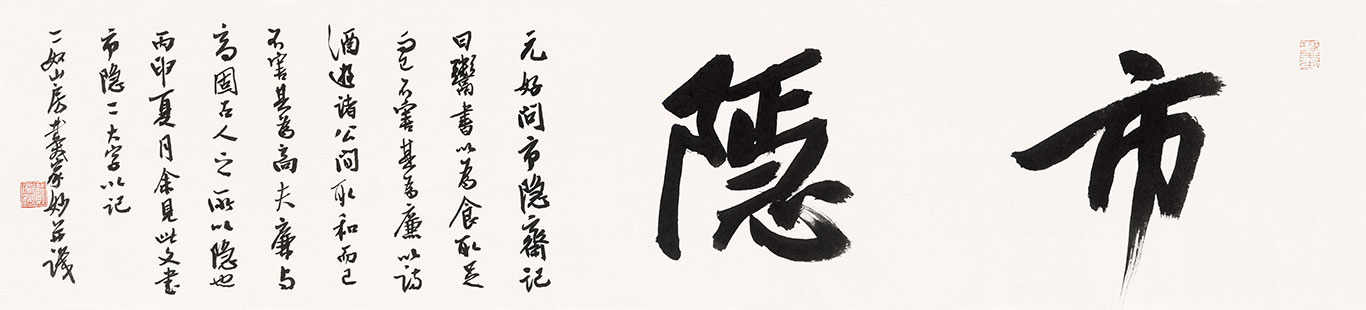 市隐
元好问市隐齋记
曰鬻書以为食取足
而已不害其為廉以诗
酒遊诸公间取和而已
不害其為高夫廉与
高固古人之所以隐也
丙申夏月余見此文書
市隐二大字以记
二如山房戴家妙并識